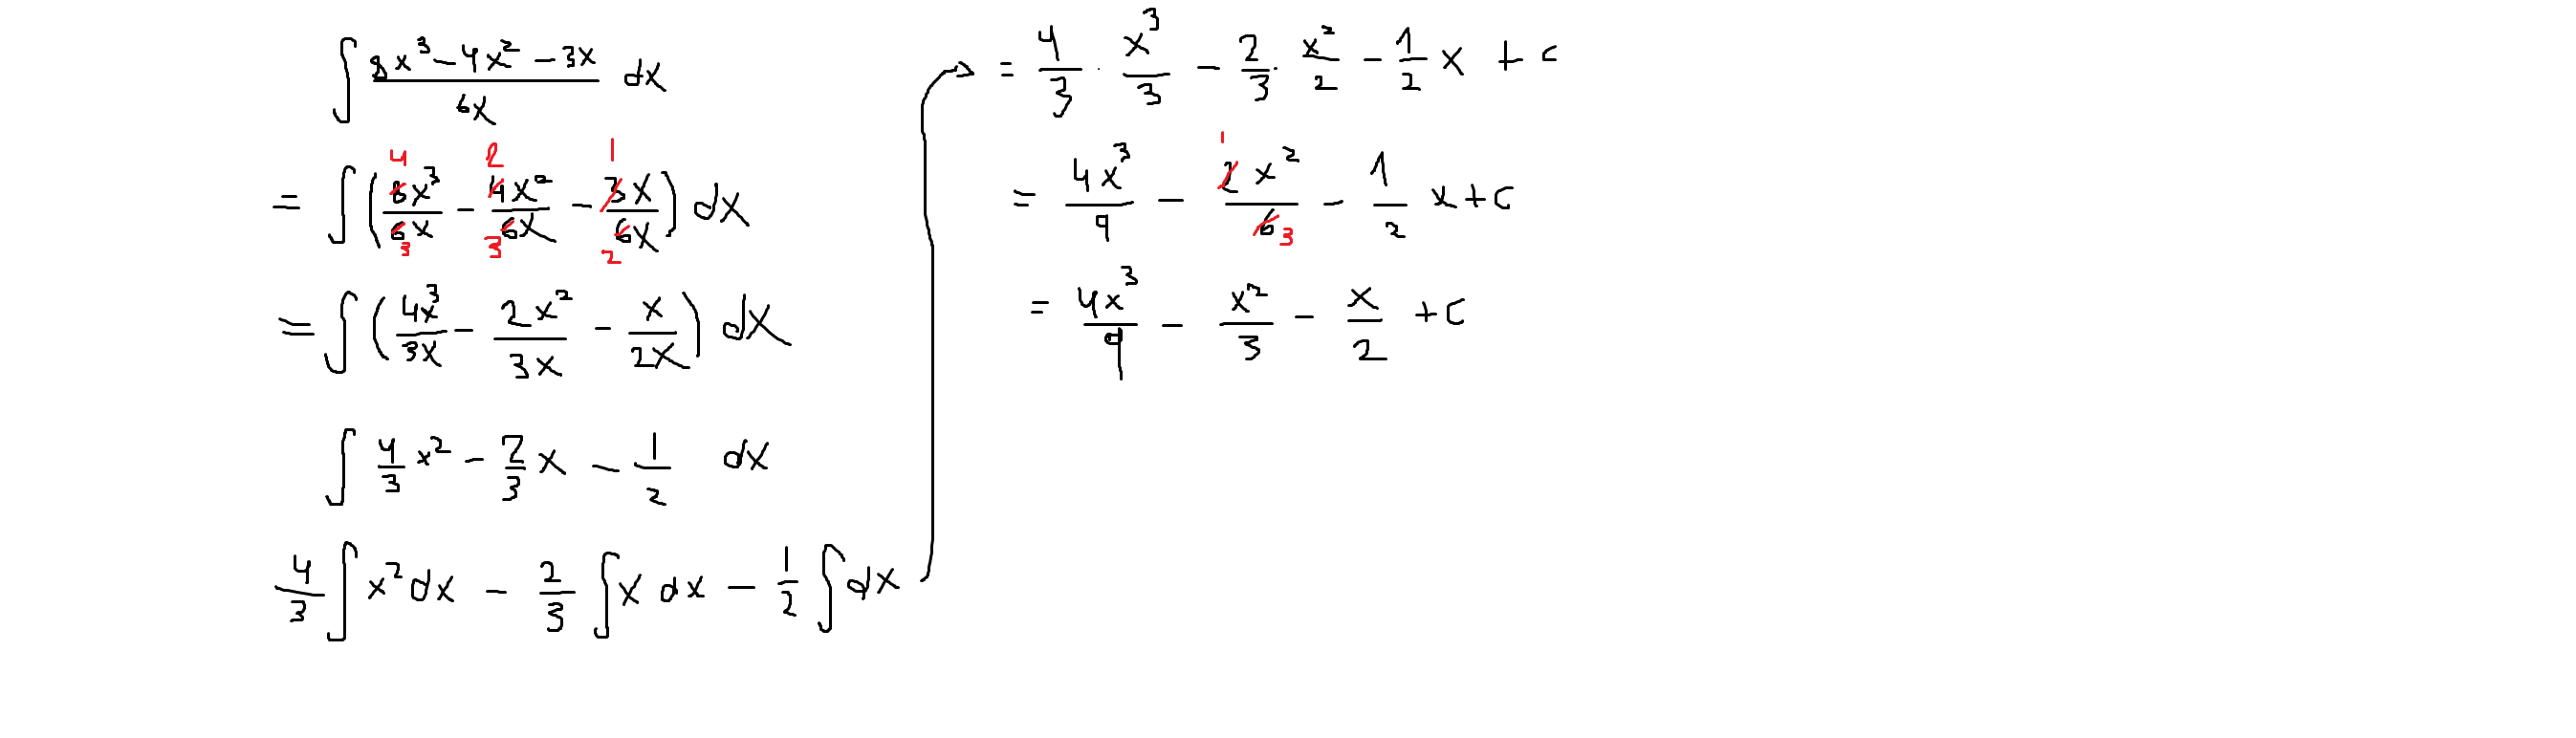 ∫ (8x³ − 4x² − 3x)/(6x) dx
= ∫ (8x³/6x − 4x²/6x − 3x/6x) dx
4 2 1
3 3 2
= ∫ (4x³/3x − 2x²/3x − x/2x) dx
∫ 4/3 x² − 2/3 x − 1/2 dx
4/3 ∫ x² dx − 2/3 ∫ x dx − 1/2 ∫ dx
→ = 4/3 · x³/3 − 2/3 · x²/2 − 1/2 x + c
= 4x³/9 − 2x²/6 − 1/2 x + c
1
3
= 4x³/9 − x²/3 − x/2 + c